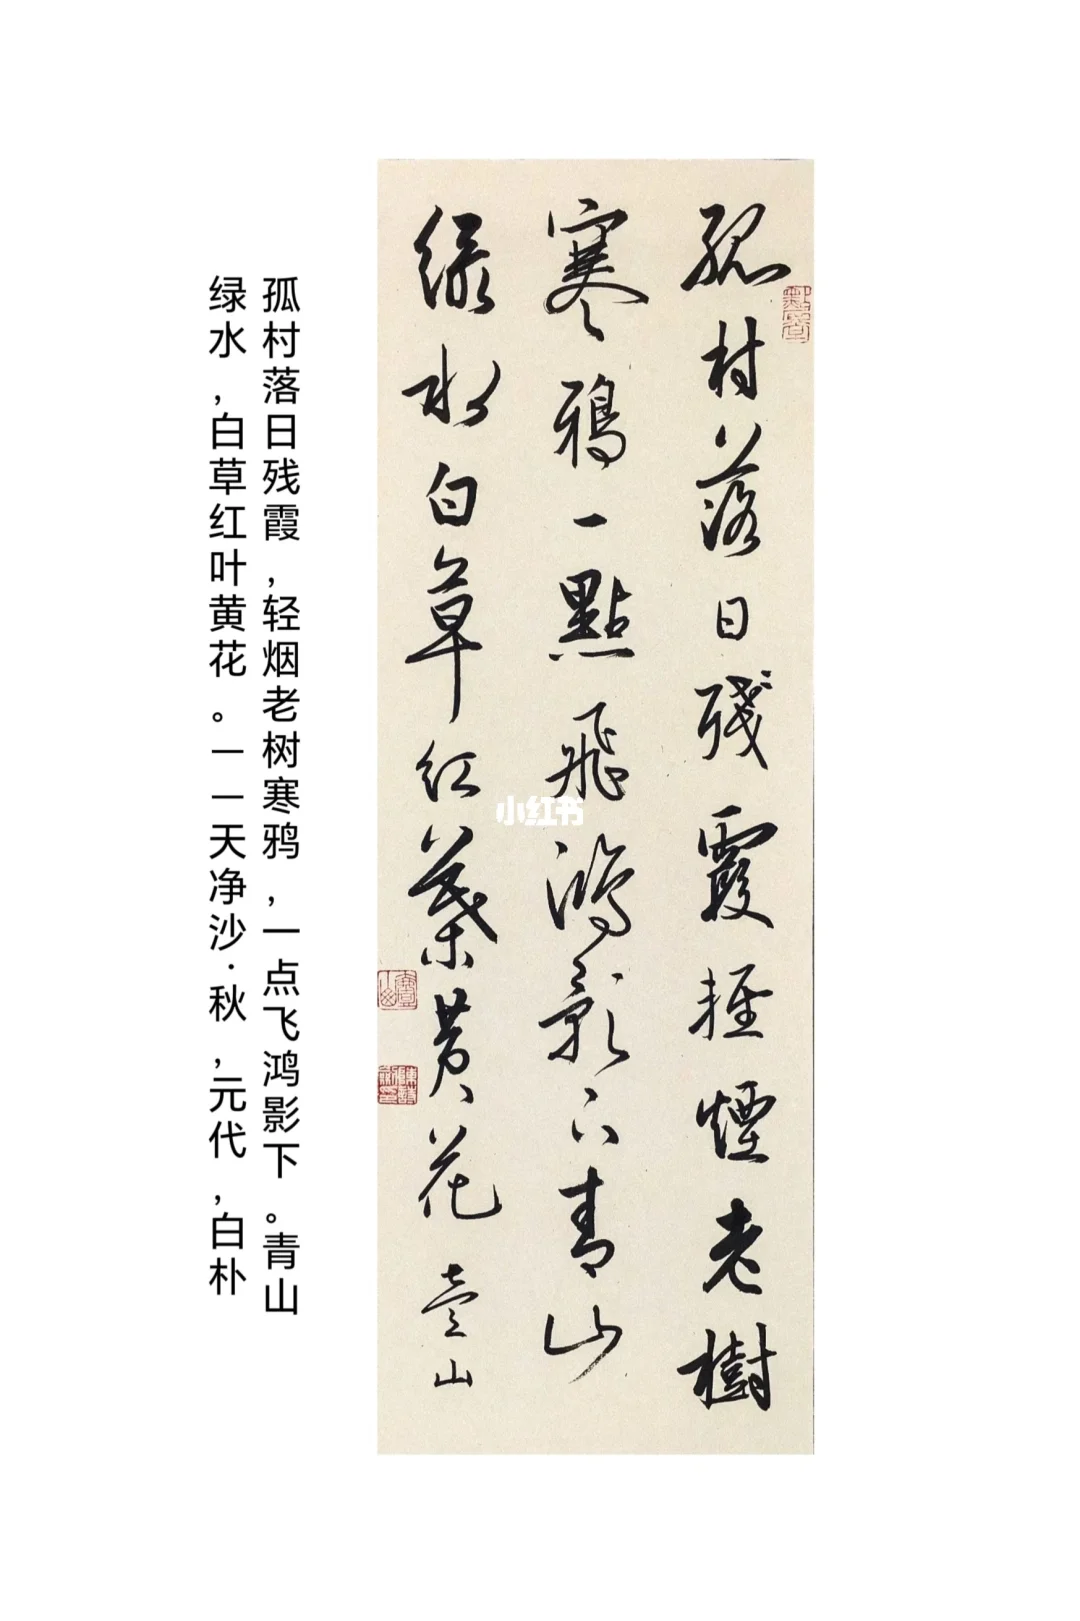 孤村落日殘霞輕煙老樹
寒鴉一點飛鴻影下青山
绿水白草红葉黄花 壹山
孤村落日残霞,轻烟老树寒鸦,一点飞鸿影下。青山
绿水,白草红叶黄花。一一天净沙·秋,元代,白朴
小红书